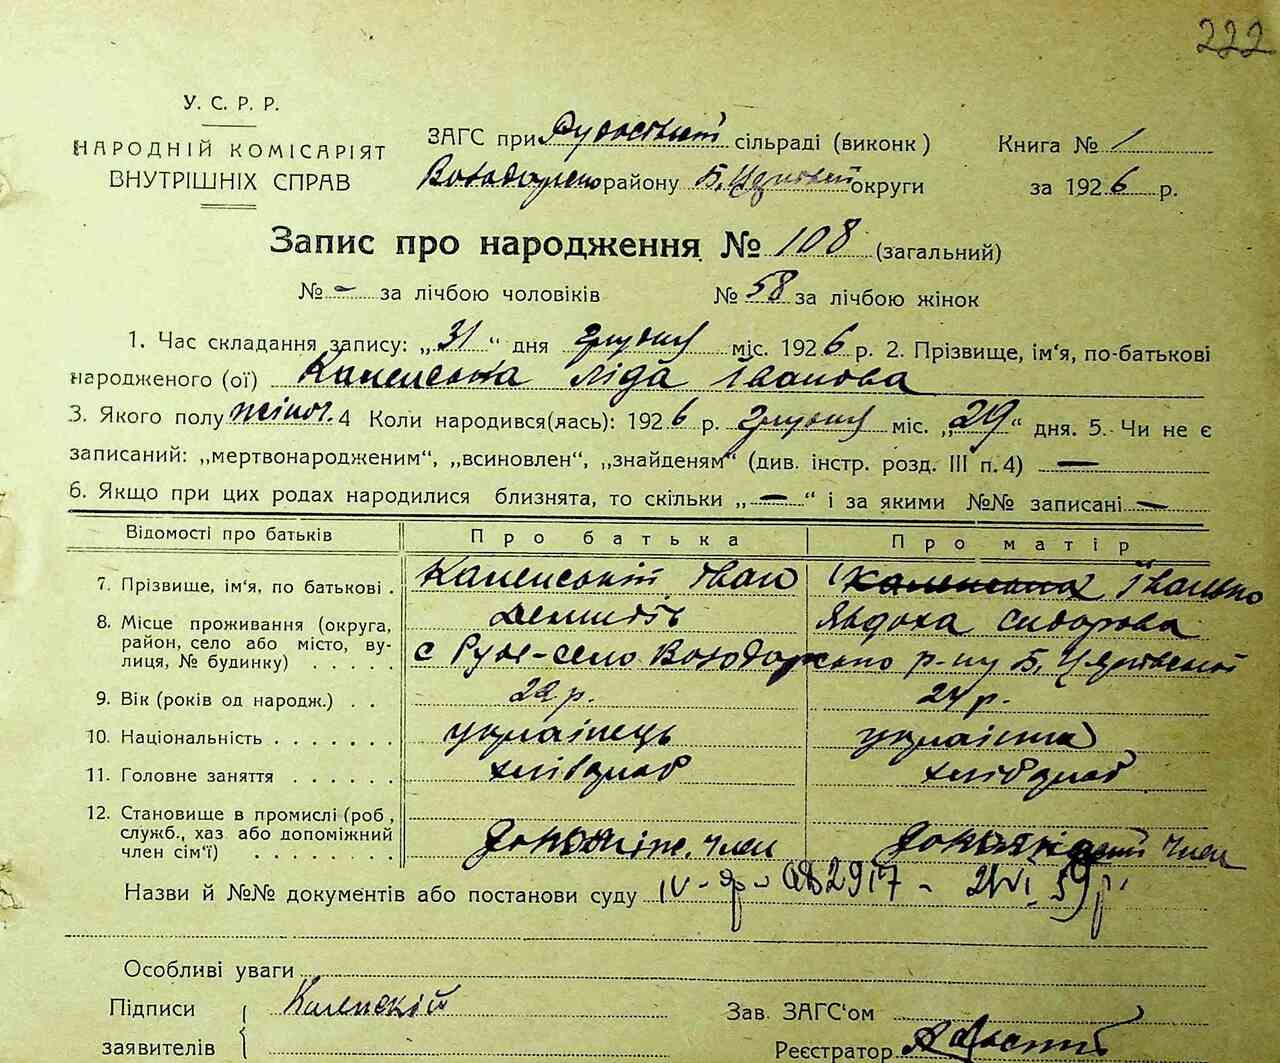 222
У. С. Р. Р.
НАРОДНІЙ КОМІСАРІЯТ
ВНУТРІШНІХ СПРАВ
ЗАГС при сільраді (виконк)
Володарсько району Б. Церківській округи
Книга № 1
за 1926 р.
Запис про народження № 108 (загальний)
№ – за лічбою чоловіків № 58 за лічбою жінок
1. Час складання запису: „31“ дня грудня міс. 1926 р. 2. Прізвище, ім‘я, по-батькові
народженого (ої) Каменська Ліда Іванова
3. Якого полу жіноч. 4 Коли народився(лась): 1926 р. грудня міс. „29“ дня. 5. Чи не є
записаний: „мертвонародженим“, „всиновлен“, „знайденям“ (див. інстр. розд. III п. 4) —
6. Якщо при цих родах народилися близнята, то скільки „—“ і за якими №№ записані —
Відомості про батьків Про батька Про матір
7. Прізвище, ім‘я, по батькові . Каменській Іван Каменська Іваненко
Явдоха Сидорова
8. Місце проживання (округа,
район, село або місто, ву-
лиця, № будинку) . . . . . с Руде-село Володарсько р-ну Б. Церківської
9. Вік (років од народж.) . . 22 р. 24 р.
10. Національність . . . . . . . українець українка
11. Головне заняття . . . . . . хлібороб хлібороб
12. Становище в промислі (роб,
служб., хаз або допоміжний
член сім‘ї) . . . . . . . . допоміж. член член
Назви й №№ документів або постанови суду
Особливі уваги
Підписи
заявителів
Каменскій
Зав. ЗАГС‘ом
Реєстратор